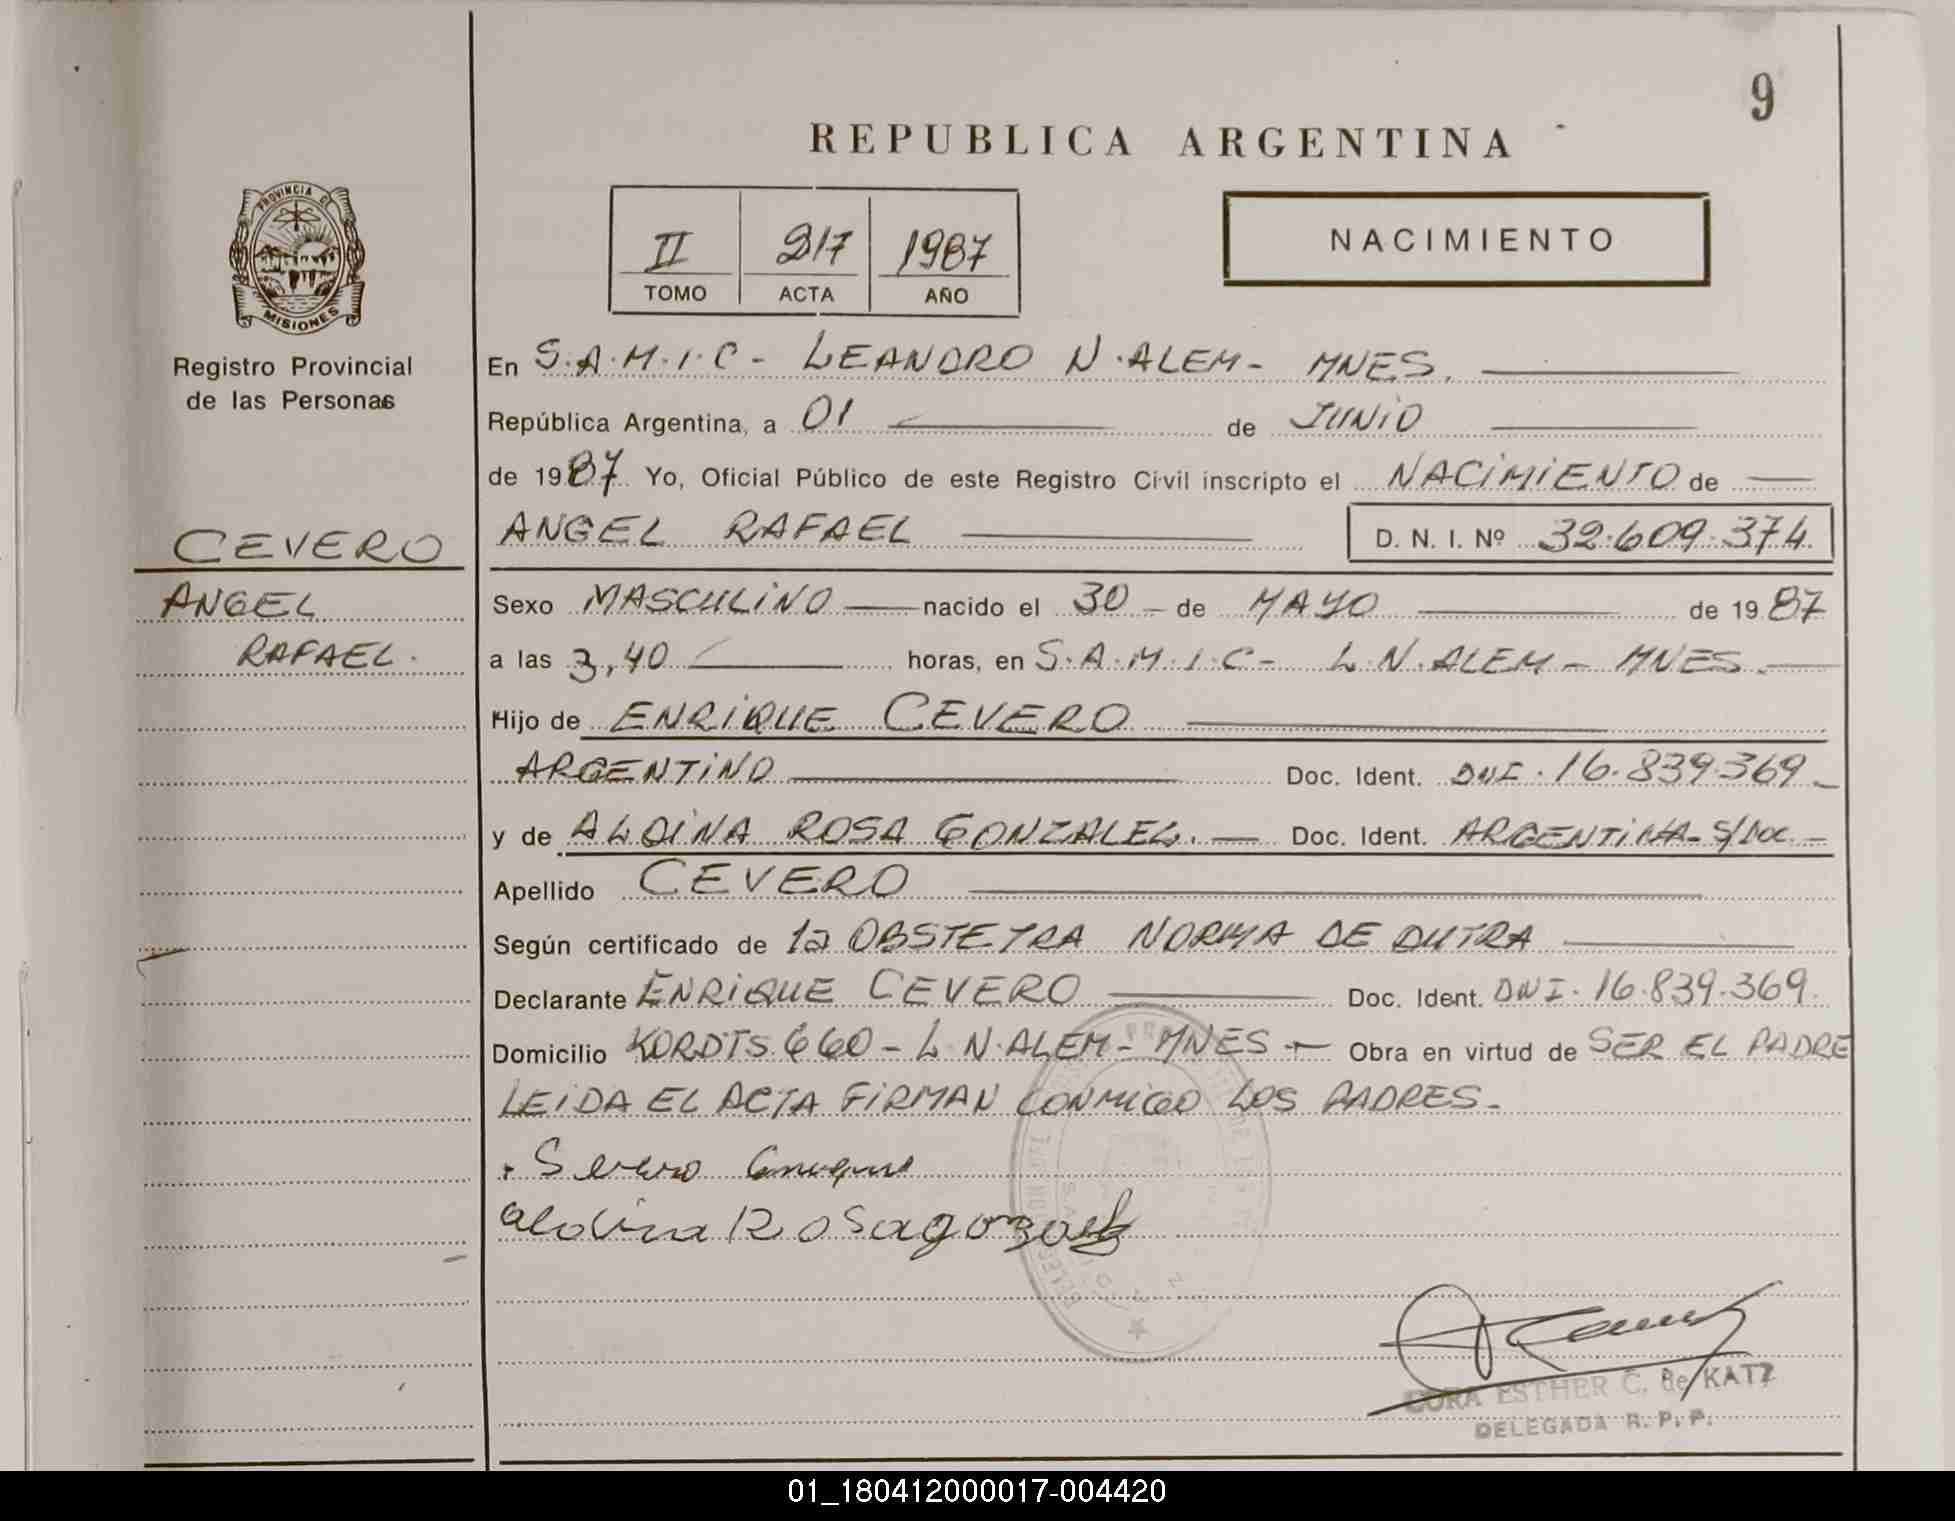 9
REPUBLICA ARGENTINA
PROVINCIA DE
MISIONES
Registro Provincial
de las Personas
II 217 1987
TOMO ACTA AÑO
NACIMIENTO
En S.A.M.I.C - LEANDRO N. ALEM - MNES.
República Argentina, a 01 de JUNIO
de 1987 Yo, Oficial Público de este Registro Civil inscripto el NACIMIENTO de
CEVERO
ANGEL
RAFAEL.
ANGEL RAFAEL D. N. I. Nº 32.609.374
Sexo MASCULINO nacido el 30 de MAYO de 1987
a las 3,40 horas, en S.A.M.I.C - L.N. ALEM - MNES.
Hijo de ENRIQUE CEVERO
ARGENTINO Doc. Ident. DNI. 16.839.369
y de ALDINA ROSA GONZALEZ. Doc. Ident. ARGENTINA - S/DOC -
Apellido CEVERO
Según certificado de la OBSTETRA NORMA DE DUTRA
Declarante ENRIQUE CEVERO Doc. Ident. DNI. 16.839.369.
Domicilio KORDTS 660 - L.N. ALEM - MNES - Obra en virtud de SER EL PADRE
LEIDA EL ACTA FIRMAN CONMIGO LOS PADRES -
Severo Enrique
aldina Rosa gonzalez
CORA ESTHER C. de KATZ
DELEGADA R. P. P.
01_180412000017-004420